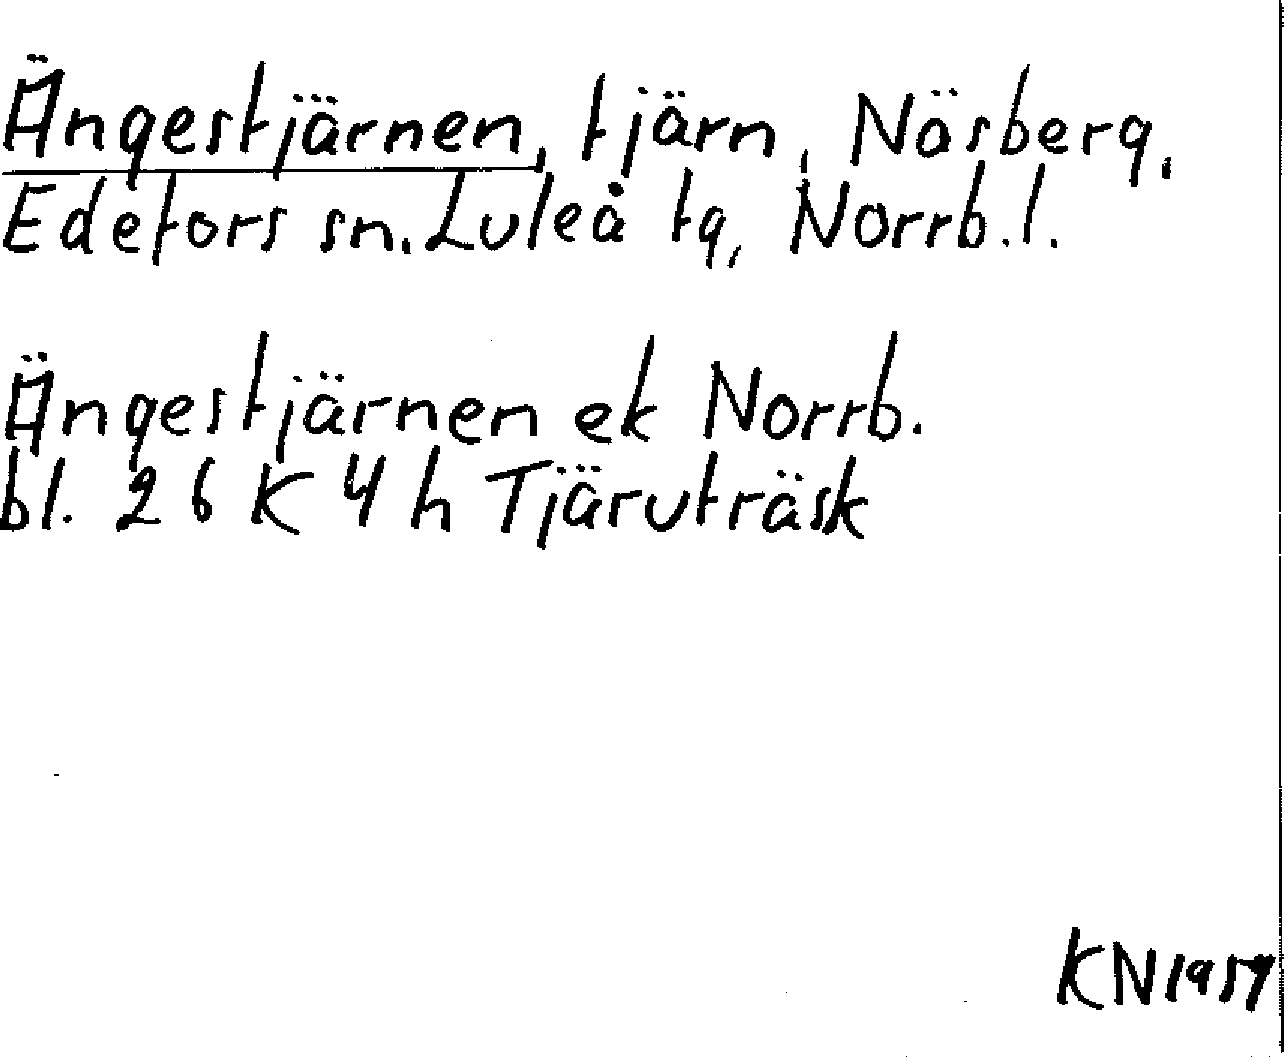 Ängestjärnen, tjärn, Näsberg,
Edefors sn. Luleå tg, Norrb.l.
Ängestjärnen ek Norrb.
bl. 26 K 4 h Tjäruträsk
KN